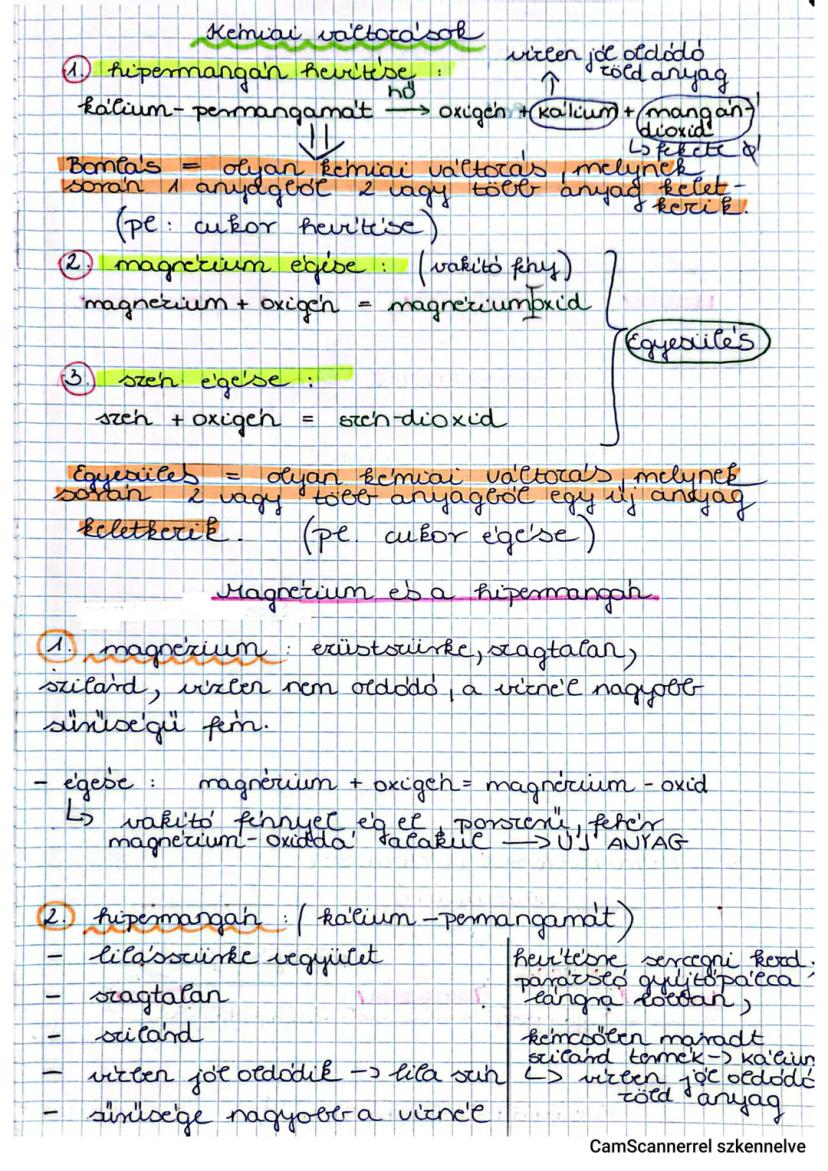 Kémiai változások
1. hipermangán hevítése :
vízben jól oldódó
zöld anyag
hő
kálium-permangamát → oxigén + kálium + mangán-
dioxid
↳ fekete
Bomlás = olyan kémiai változás, melynek
során 1 anyagból 2 vagy több anyag kelet-
kezik.
(pl: cukor hevítése)
2. magnézium égése : (vakító fény)
magnézium + oxigén = magnéziumoxid
Egyesülés
3. szén égése :
szén + oxigén = szén-dioxid
Egyesülés = olyan kémiai változás, melynek
során 2 vagy több anyagból egy új anyag
keletkezik. (pl. cukor égése)
Magnézium és a hipermangán
1. magnézium : ezüstszürke, szagtalan,
szilárd, vízben nem oldódó, a víznél nagyobb
sűrűségű fém.
- égése : magnézium + oxigén = magnézium - oxid
↳ vakító fénnyel ég el, porszerű, fehér
magnézium-oxiddá alakul → ÚJ ANYAG
2. hipermangán : (kálium-permangamát)
- lilásszürke vegyület
- szagtalan
- szilárd
- vízben jól oldódik → lila szín
- sűrűsége nagyobb a víznél
hevítésre sercegni kezd.
parázsló gyújtópálca
lángra lobban,
kémcsőben maradt
szilárd termék → kálium
↳ vízben jól oldódó
zöld anyag
CamScannerrel szkennelve